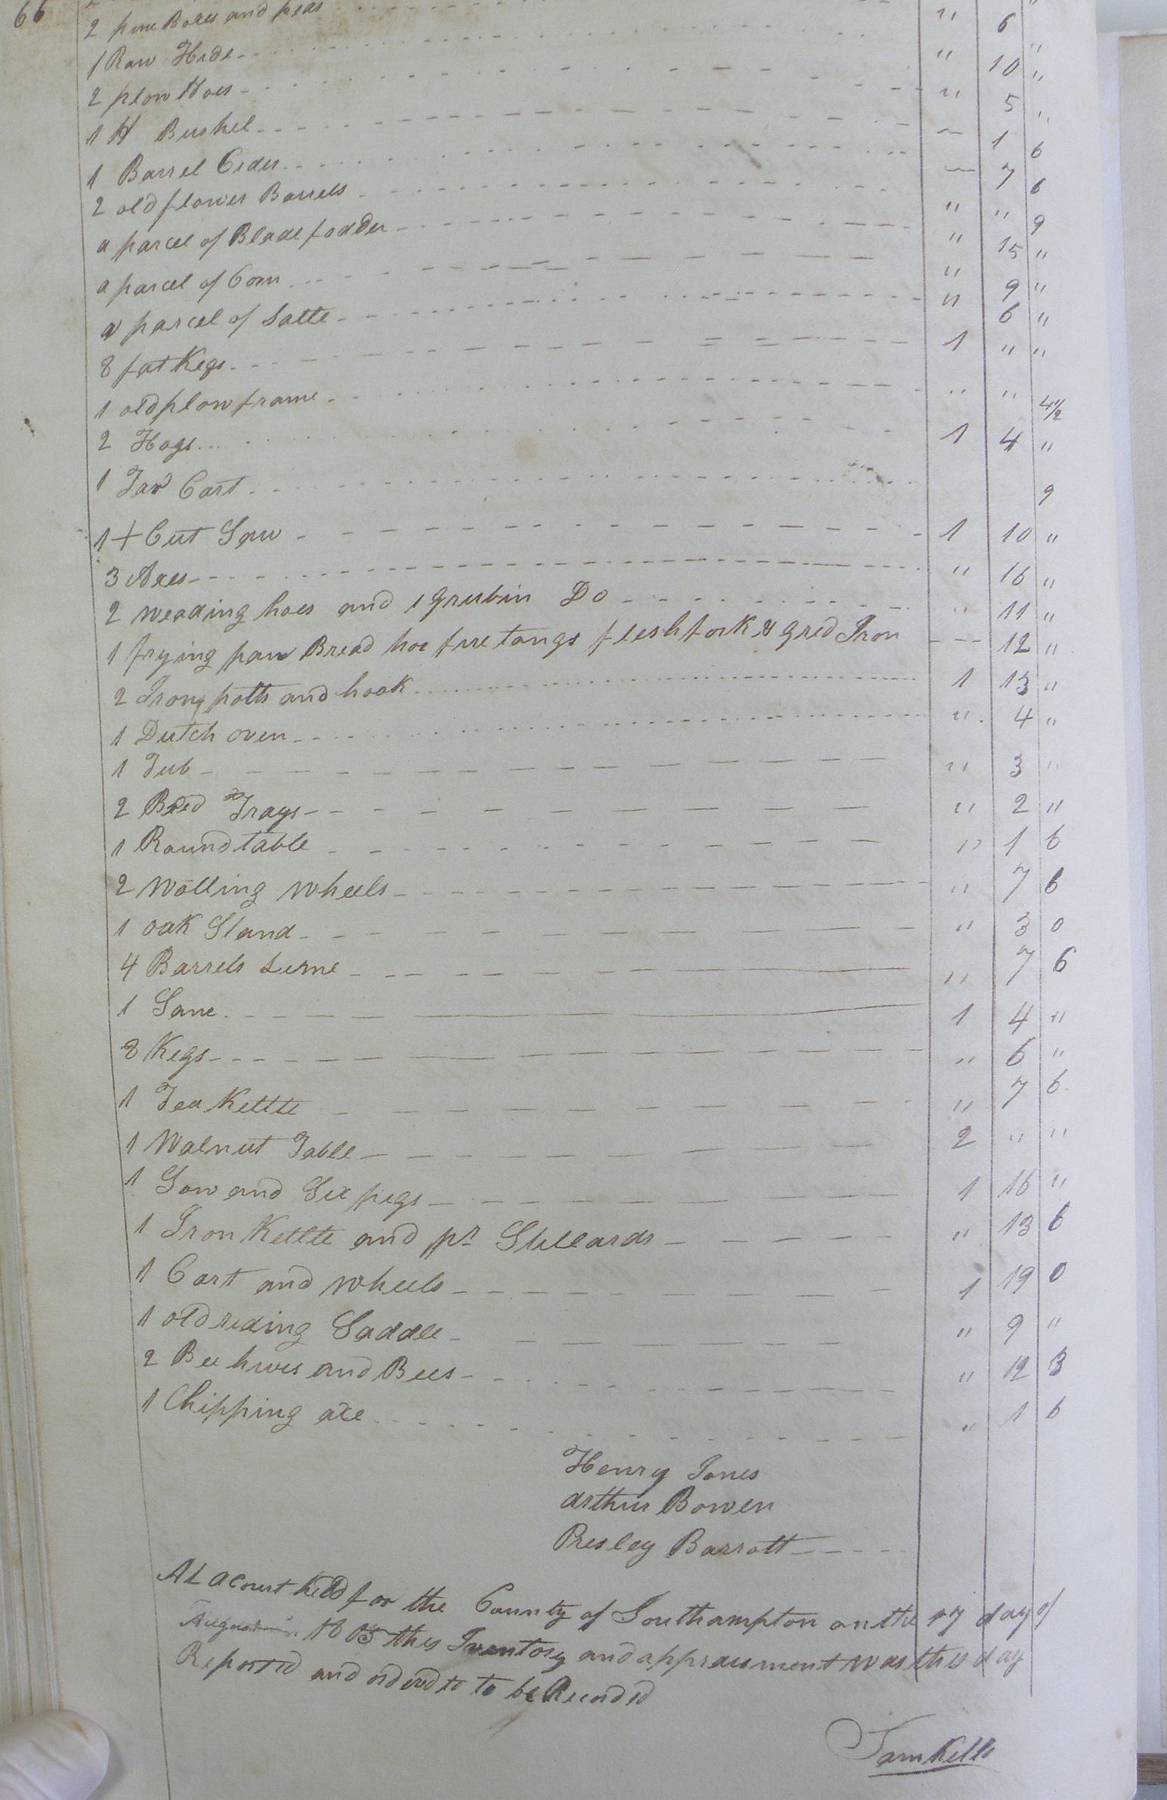 66
2 pine Boxes and peas " 6 "
1 Raw Hide " 10 "
2 plow Hoes " 5 "
1 H Bushel 1 6
1 Barrel Cider 7 6
2 old flower Barrels " " 9
a parcel of Blade fodder " 15 "
a parcel of Corn " 9 "
a parcel of Salte " 6 "
8 fat Kegs 1 " "
1 old plow frame " " 4½
2 Hogs 1 4 "
1 Tar Cart 9
1 + Cut Saw 1 10 "
3 Axes " 16 "
2 weading hoes and 1 grubin Do " 11 "
1 frying pan Bread hoe fire tongs flesh fork & grid Iron 12 "
2 Irong potts and hook 1 13 "
1 Dutch oven " 4 "
1 Tub " 3 "
2 Bred Trays " 2 "
1 Round table " 1 6
2 Wolling wheels " 7 6
1 oak Stand " 3 0
4 Barrels Lime " 7 6
1 1 4 "
8 Kegs " 6 "
1 Tea Kettle " 7 6
1 Walnut Table 2 " "
1 Sow and Six pigs 1 16 "
1 Iron Kettle and pr Stileards " 13 6
1 Cart and wheels 1 19 0
1 old reding Saddle " 9 "
2 Bee hives and Bees " 12 3
1 Chipping axe " 1 6
Henry Jones
Arthur Bowen
Presley Barrott
At a Court held for the County of Southampton on the day of
August this Inventory and appraisment was this day
Reported and orderd to be Recorded
Sam Kello